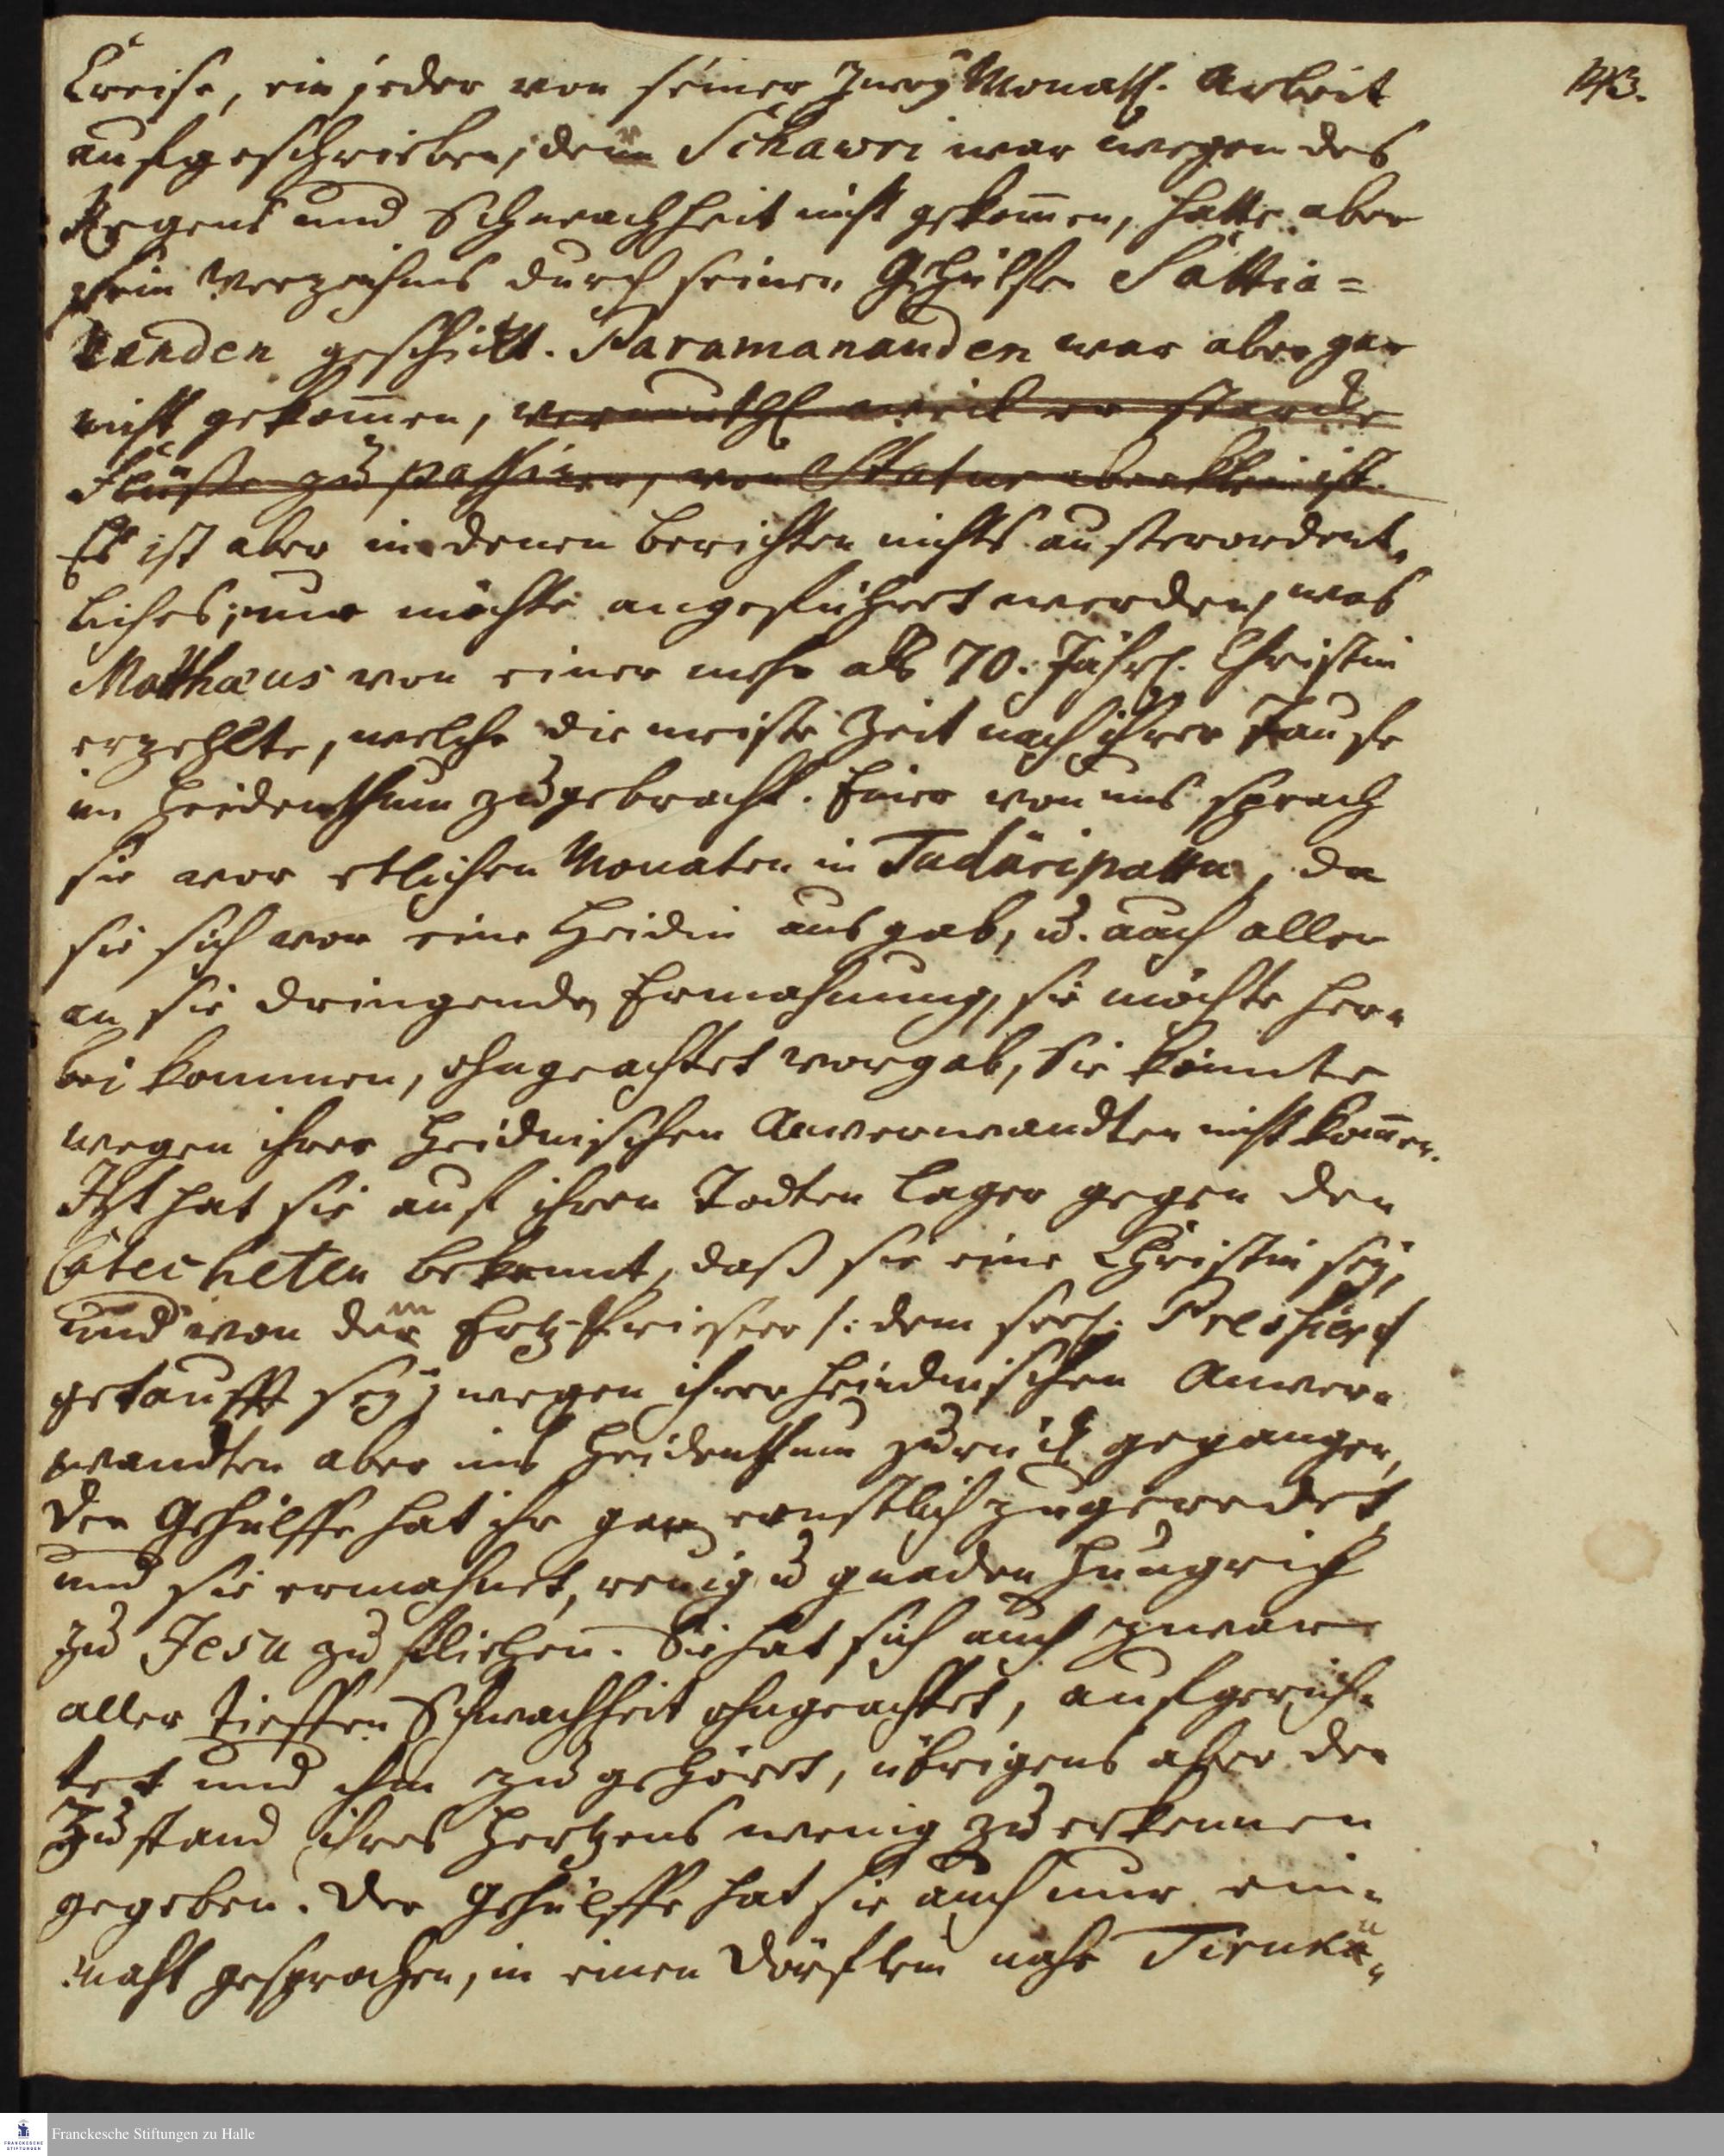 143.
Creise, ein jeder von seiner Zwey Monatl. Arbeit
aufgeschrieben, der Schawri war wegen des
Regens und Schwachheit nicht gekom̄en, hatte aber
sein Verzeichnis durch seinen Gehülfen Sattia=
nanden geschickt. Paramananden war aber gar
nicht gekom̄en, vermuthl. weil er starcke
Flüsse zu passiren, von Statur aber klein ist.
Es ist aber in denen Berichten nichts ausserordent„
liches; nur möchte angeführet werden, was
Matthæus von einer mehr als 70. Jährl. Christin
erzehlte, welche die meiste Zeit nach ihrer Taufe
im Heidenthum zugebracht. Einer von uns sprach
sie vor etlichen Monaten in Tudäripattu, da
sie sich vor eine Heidin ausgab, u. auch aller
an sie dringenden Ermahnung, sie möchte her„
bei kommen, ohngeachtet vorgab, sie könnte
wegen ihrer Heidnischen Anverwandten nicht kom̄en.
Itzt hat sie auf ihren Todten Lager gegen den
Catecheten bekennt, daß sie eine Christin sey,
und von dem Ertz-Priester /: dem seel. Pressier :/
getaufft sey; wegen ihrer heidnischen Anver„
wandten aber ins Heidenthum zurück gegangen,
Der Gehülffe hat ihr gar ernstlich zugeredet,
und sie ermahnet, reuig u gnaden hungrich
zu Jesu zu fliehen. Sie hat sich auch zwar
aller tieffen Schwachheit ohngeachtet, aufgerich„
tet und ihm zu gehöret, übrigens aber den
Zustand ihres Hertzens wenig zu erkennen
gegeben. Der Gehülffe hat sie auch nur ein„
mahl gesprochen, in einen Dörflein nahe Tirukü„
Franckesche Stiftungen zu Halle